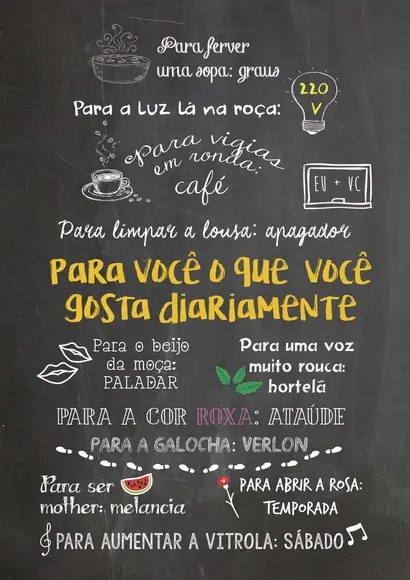 Para ferver
uma sopa: graus
220
V
Para a luz lá na roça:
Para vigias
em ronda:
café
EU + VC
Para limpar a lousa: apagador
PARA VOCÊ O QUE VOCÊ
GOSTA DIARIAMENTE
Para o beijo
da moça:
PALADAR
Para uma voz
muito rouca:
hortelã
PARA A COR ROXA: ATAÚDE
PARA A GALOCHA: VERLON
Para ser
mother: melancia
PARA ABRIR A ROSA:
TEMPORADA
PARA AUMENTAR A VITROLA: SÁBADO